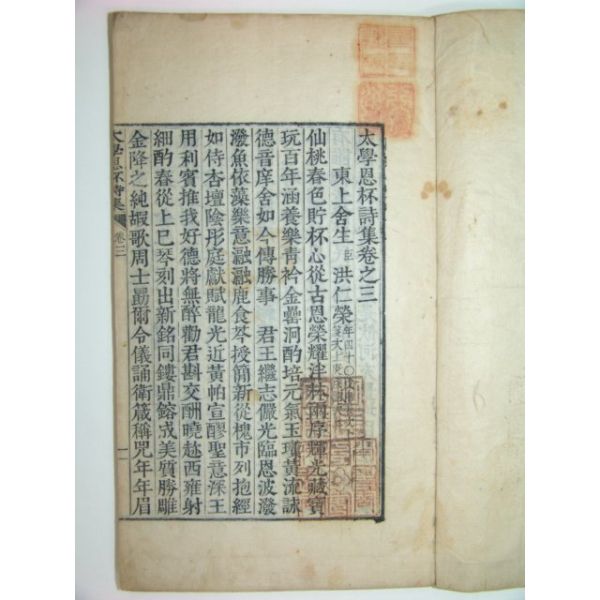 太學恩杯詩集卷之三
東上舍生 臣 洪仁榮
仙桃春色貯杯心從古恩榮耀泮林雨序輝光藏寶
玩百年涵養樂靑衿金罍泂酌培元氣玉瓚黃流詠
德音庠舍如今傳勝事 君王繼志儼光臨恩波潑
潑魚依藻樂意融融鹿食芩授簡新從槐市列抱經
如侍杏壇陰彤庭獻賦龍光近黃帕宣醪聖意深王
用利賓推我好德將無醉勸君斟交酬曉趂西雍射
細酌春從上巳琴刻出新銘同鏤鼎鎔成美質勝雕
金降之純嘏歌周士勗爾令儀誦衛箴稱咒年年眉
太學恩杯詩集 卷三 一